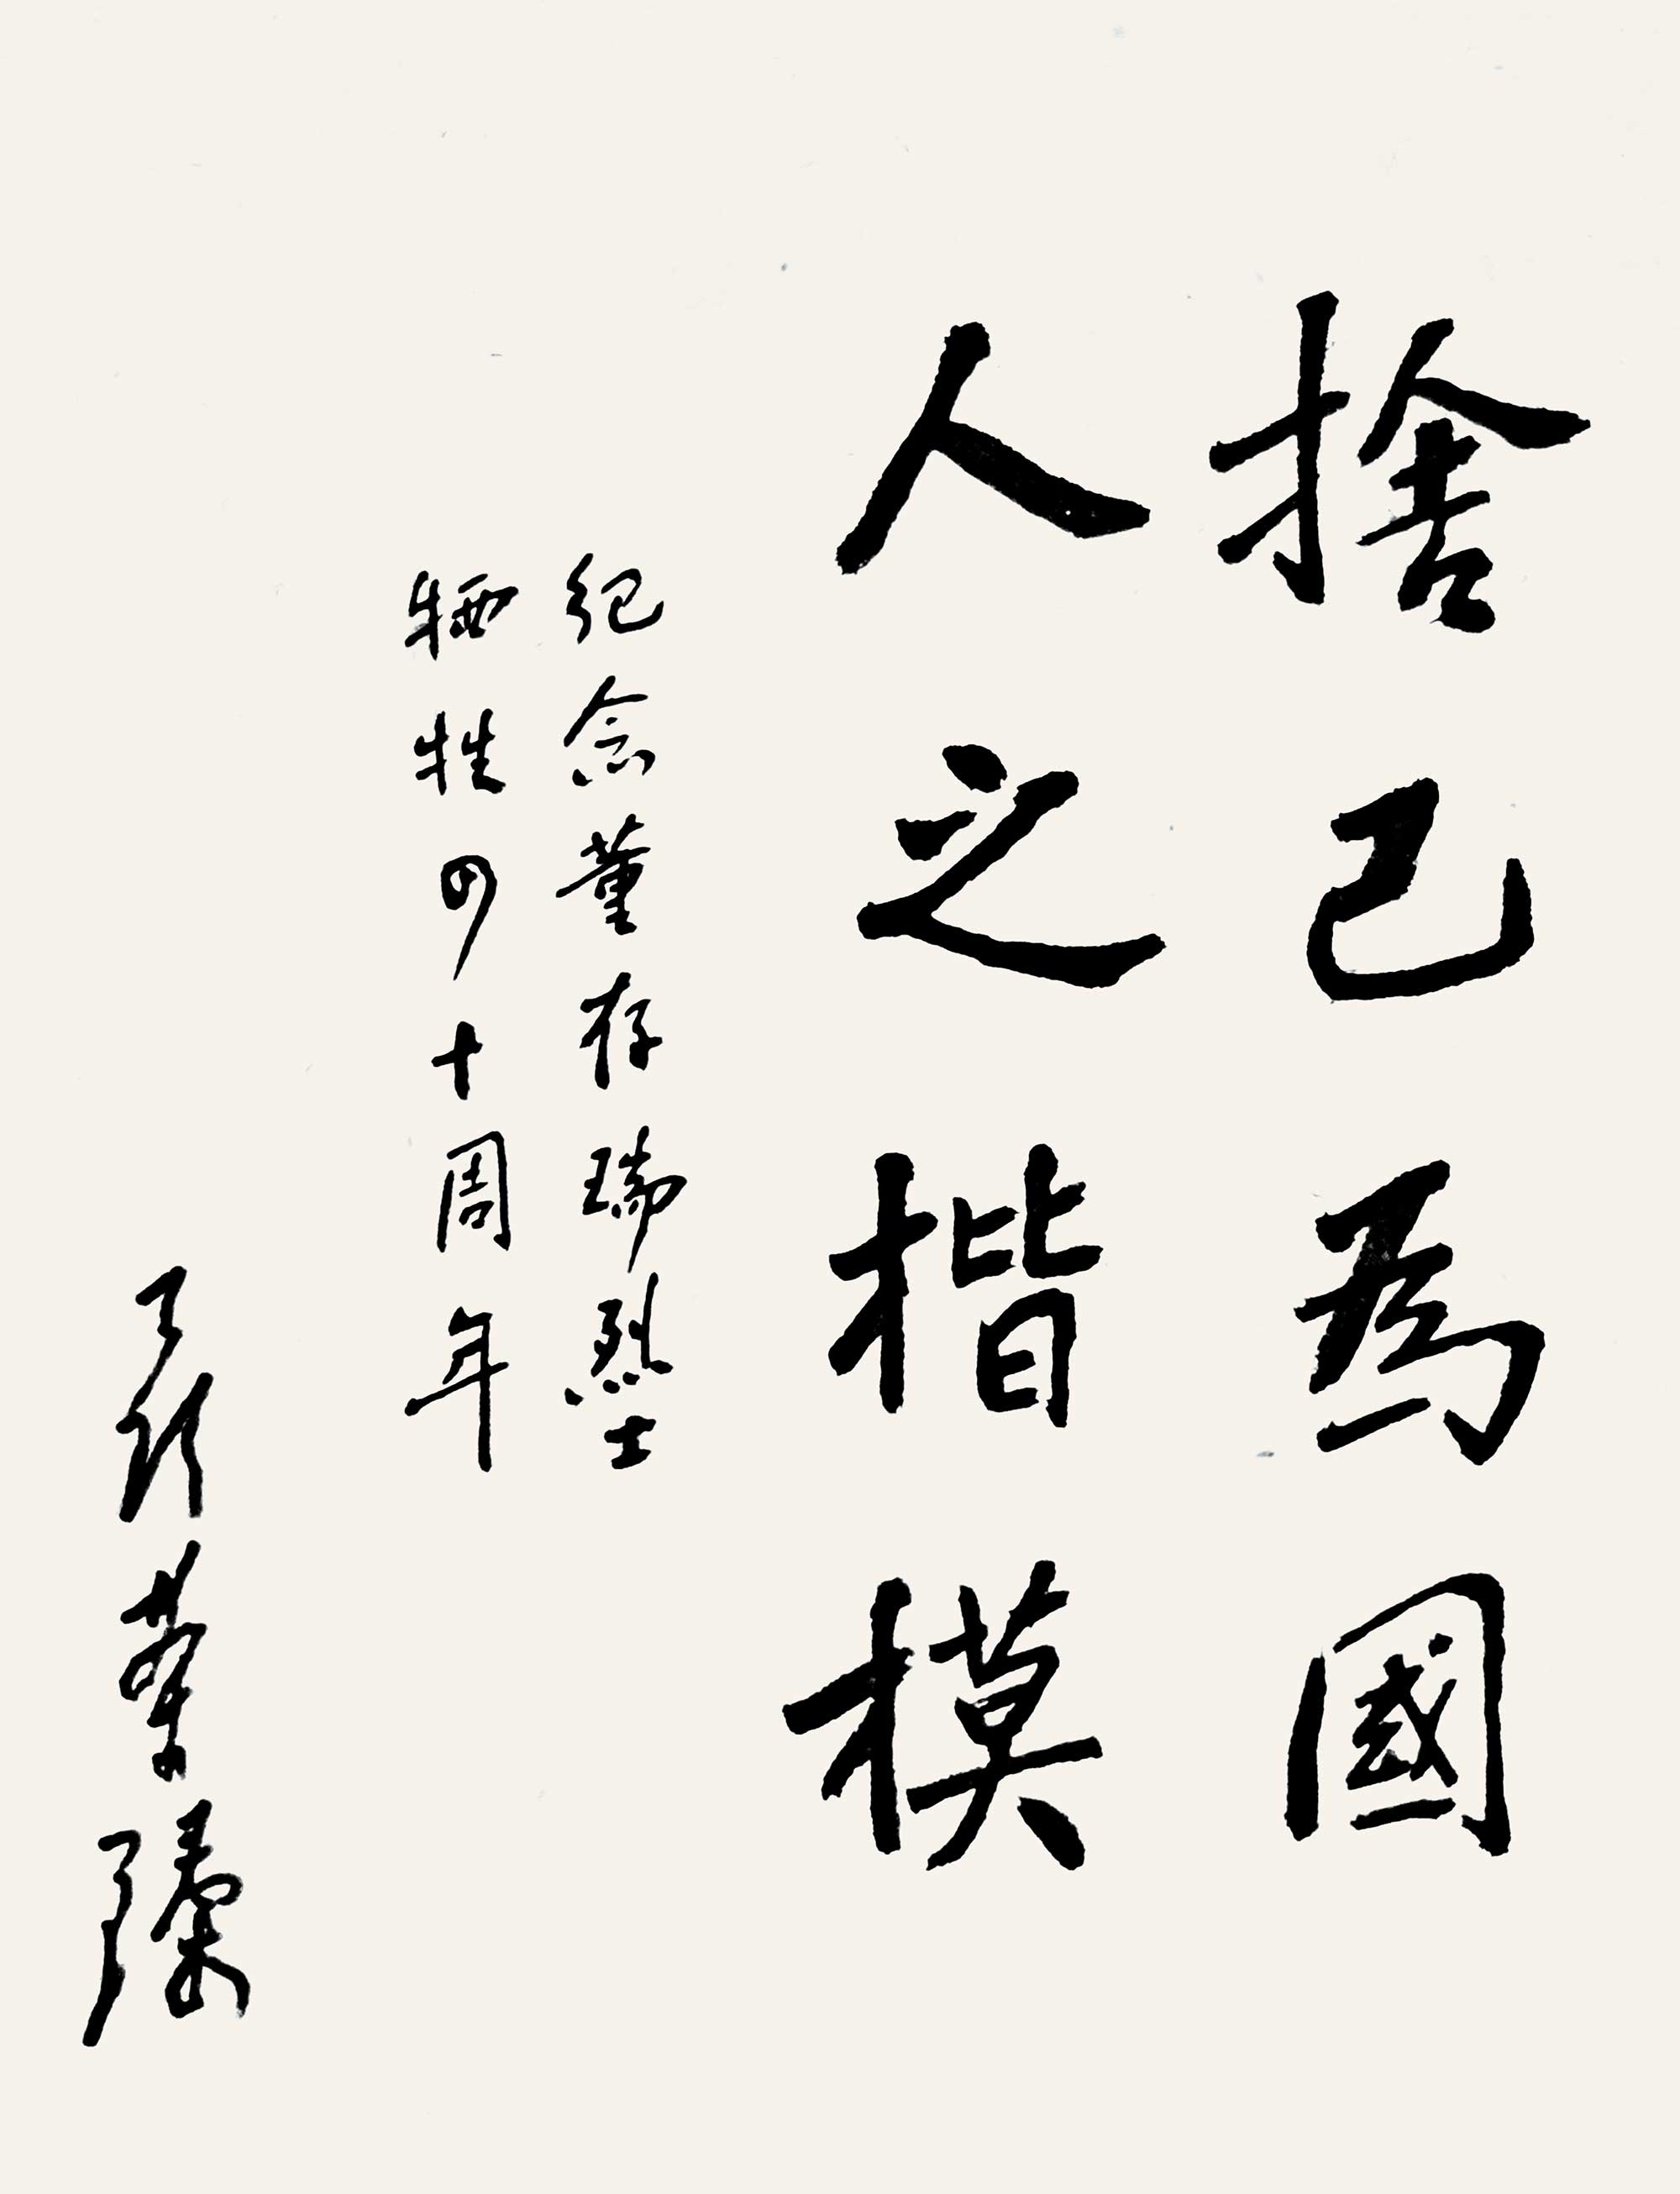 捨己為國
人之楷模
紀念董存瑞烈士
牺牲四十周年
聂荣臻